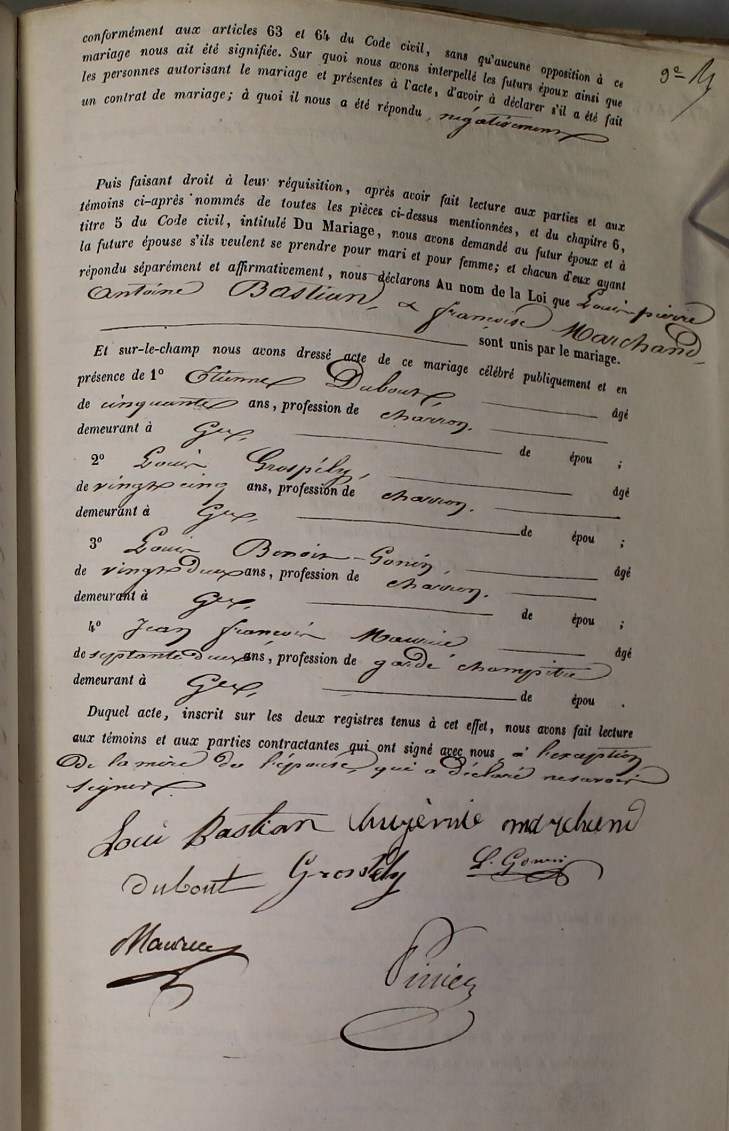 conformément aux articles 63 et 64 du Code civil, sans qu'aucune opposition à ce
mariage nous ait été signifiée. Sur quoi nous avons interpellé les futurs époux ainsi que
les personnes autorisant le mariage et présentes à l'acte, d'avoir à déclarer s'il a été fait
un contrat de mariage; à quoi il nous a été répondu négativement
9e
Puis faisant droit à leur réquisition, après avoir fait lecture aux parties et aux
témoins ci-après nommés de toutes les pièces ci-dessus mentionnées, et du chapitre 6,
titre 5 du Code civil, intitulé Du Mariage, nous avons demandé au futur époux et à
la future épouse s'ils veulent se prendre pour mari et pour femme; et chacun d'eux ayant
répondu séparément et affirmativement, nous déclarons Au nom de la Loi que Louis-pierre
antoine Bastian, & françoise Marchand,
sont unis par le mariage.
Et sur-le-champ nous avons dressé acte de ce mariage célébré publiquement et en
présence de 1° Etienne Dubout, âgé
de cinquante ans, profession de charron,
demeurant à Gex, de épou ;
2° Louis Grospély, âgé
de vingt cinq ans, profession de charron,
demeurant à Gex, de épou ;
3° Louis Benoit-Gonin, âgé
de vingt deux ans, profession de charron,
demeurant à Gex, de épou ;
4° Jean françois Maurice âgé
de septante deux ans, profession de garde champêtre
demeurant à Gex, de épou .
Duquel acte, inscrit sur les deux registres tenus à cet effet, nous avons fait lecture
aux témoins et aux parties contractantes qui ont signé avec nous, à l'exception
De la mère de l'épouse, qui a déclaré ne savoir
signer
Loui Bastian marchand
dubout Grospély L. Gonin
Maurice